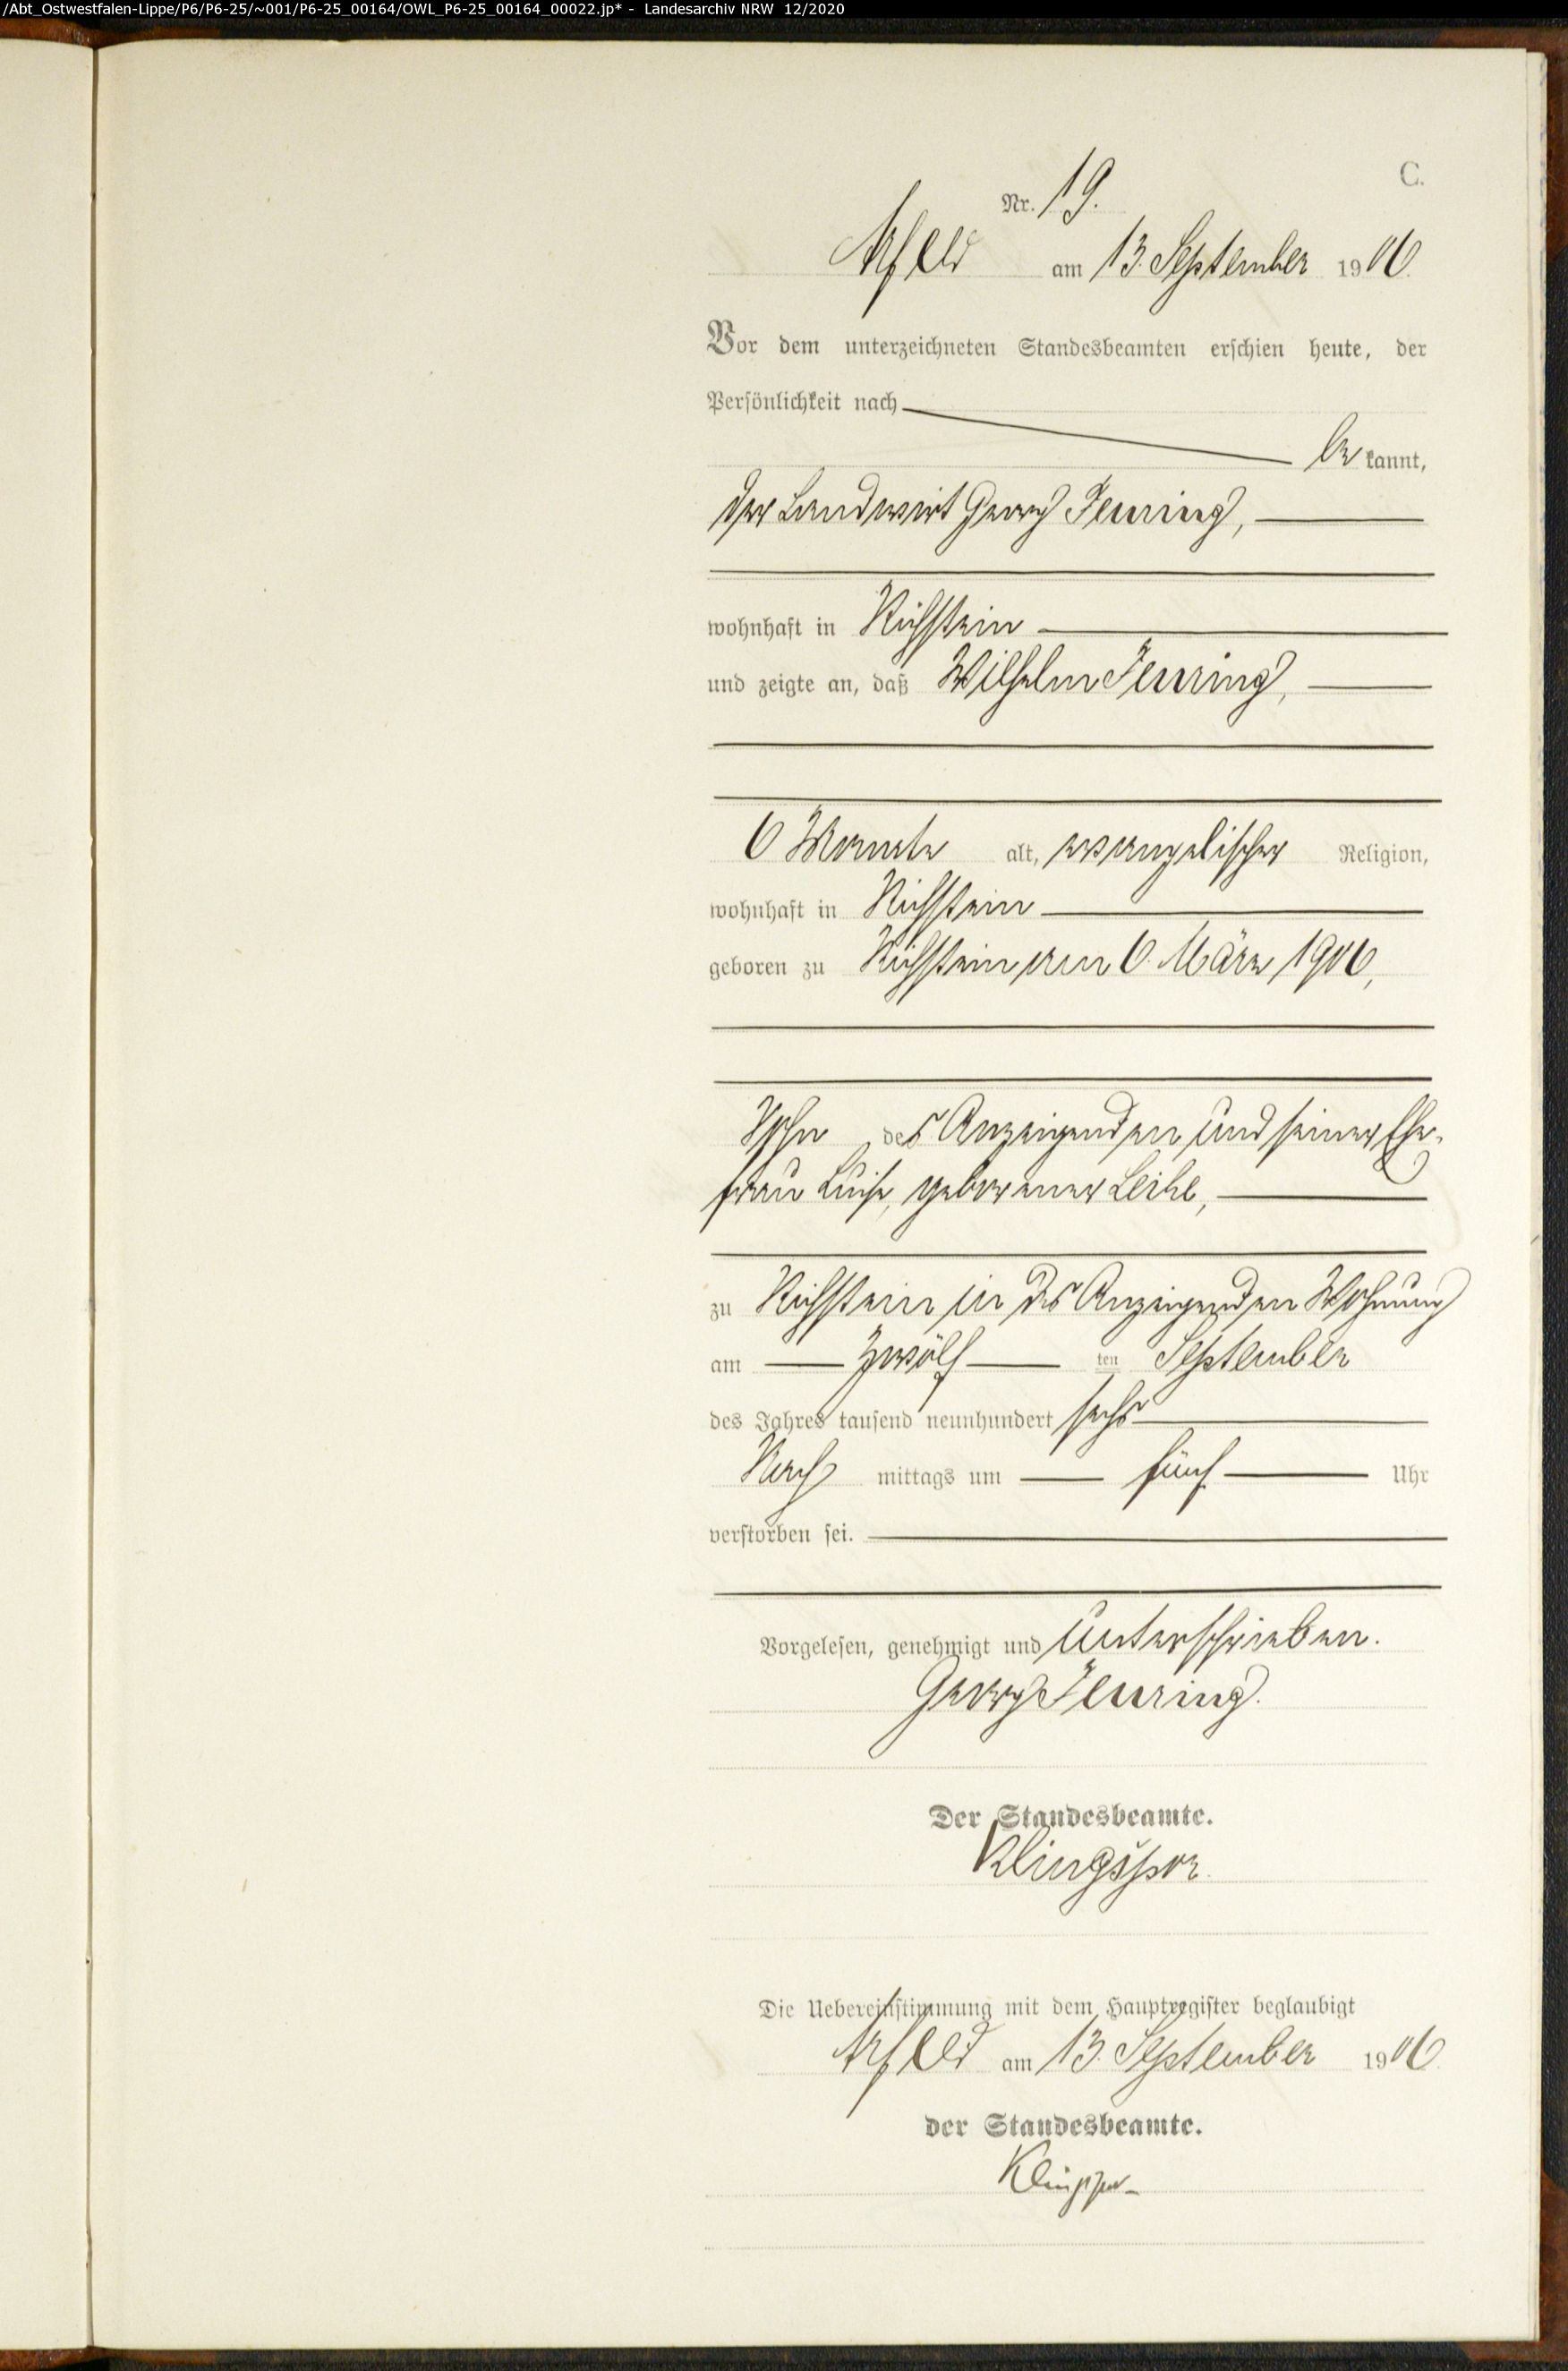 /Abt_Ostwestfalen-Lippe/P6/P6-25/~001/P6-25_00164/OWL_P6-25_00164_00022.jp* - Landesarchiv NRW 12/2020
C.
Nr. 19.
Arfeld am 13. September 1906.
Vor dem unterzeichneten Standesbeamten erschien heute, der
Persönlichkeit nach
bekannt,
der Landwirt Georg Feuring,
wohnhaft in Richstein
und zeigte an, daß Wilhelm Feuring,
6 Monate alt, evangelischer Religion,
wohnhaft in Richstein
geboren zu Richstein am 6. März 1906,
Sohn des Anzeigenden und seiner Ehe-
frau Luise, geborener
zu Richstein in des Anzeigenden Wohnung
am zwölf ten September
des Jahres tausend neunhundert sechs
Nach mittags um fünf Uhr
verstorben sei.
Vorgelesen, genehmigt und unterschrieben.
Georg Feuring.
Der Standesbeamte.
Klingspor.
Die Uebereinstimmung mit dem Hauptregister beglaubigt
Arfeld am 13. September 1906.
der Standesbeamte.
Klingspor